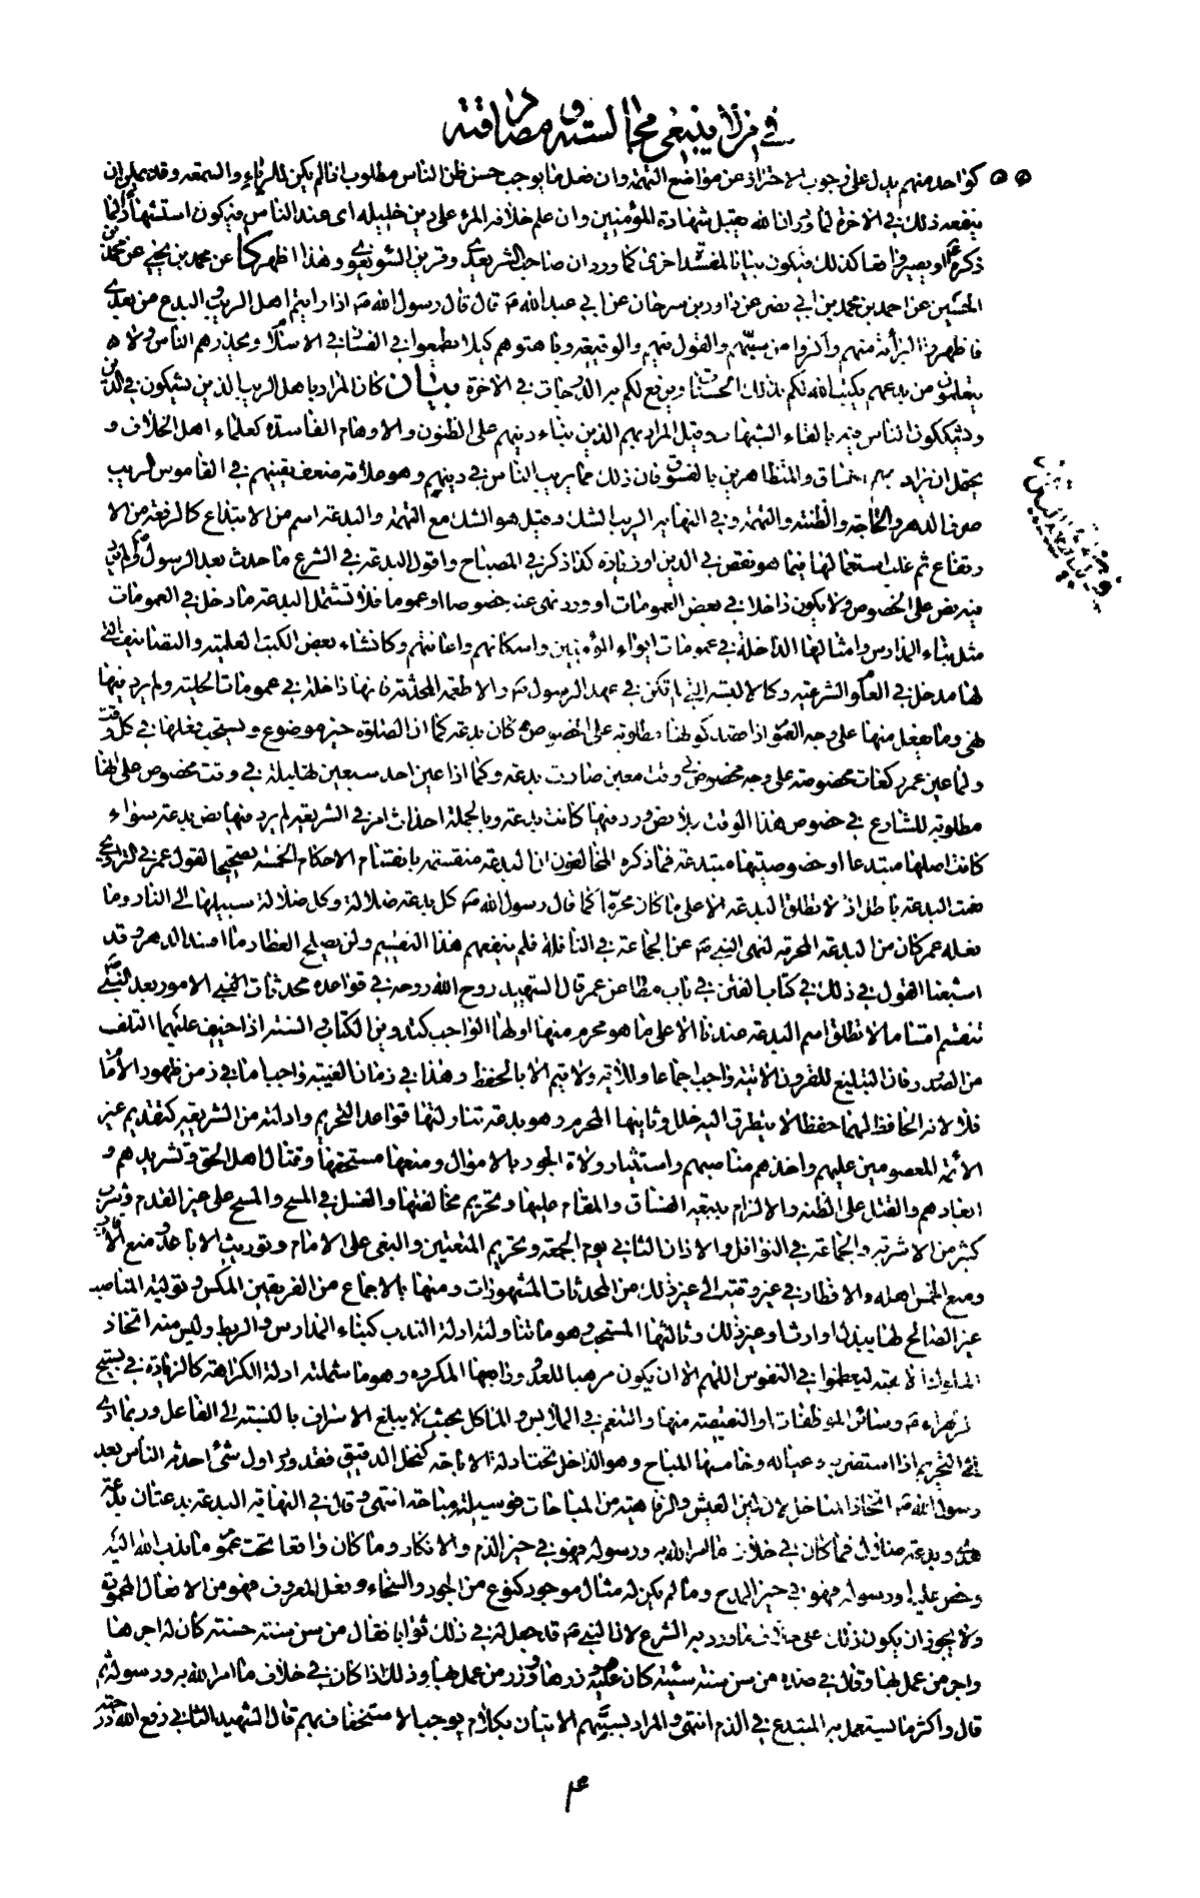 في من لا ينبغي مجالسته و مصادقته
كواحد منهم يدل على وجوب الاحتراز عن مواضع التهمة وان فعل ما يوجب حسن ظن الناس مطلوب اذا لم يكن للرياء والسمعة وقد يمكن ان
ينفعه ذلك في الاخرة لما ورد ان الله يقبل شهادة المؤمنين وان علم خلافه المرء على دين خليله اي عند الناس فيكون استشهادا لما
ذكره او يصير واقعا كذلك فيكون بيانا لمفسدة اخرى كما ورد ان صاحب الشر يعدي وقرين السوء يغوي وهذا اظهر كا عن محمد بن يحيى عن محمد بن
الحسين عن احمد بن محمد بن ابي نصر عن داود بن سرحان عن ابي عبد الله ع قال قال رسول الله ص اذا رايتم اهل الريب والبدع من بعدي
فاظهروا البرائة منهم واكثروا من سبهم والقول فيهم والوقيعة وباهتوهم كيلا يطمعوا في الفساد في الاسلام ويحذرهم الناس ولا
يتعلمون من بدعهم يكتب الله لكم بذلك الحسنات ويرفع لكم به الدرجات في الاخرة بيان كان المراد باهل الريب الذين يشكون في الدين
ويشككون الناس فيه بالقاء الشبهات وقيل المراد بهم الذين بناء دينهم على الظنون والاوهام الفاسدة كعلماء اهل الخلاف و
يحتمل ان يراد بهم الفساق والمتظاهرين بالفسوق فان ذلك مما يريب الناس في دينهم وهو علامة ضعف يقينهم في القاموس الريب
صرف الدهر والحاجة والظنة والتهمة وفي النهاية الريب الشك وقيل هو الشك مع التهمة والبدعة اسم من الابتداع كالرفعة من الا
رتفاع ثم غلب استعمالها فيما هو نقص في الدين او زيادة كذا ذكر في المصباح واقول البدعة في الشرع ما حدث بعد الرسول ص ولم يرد
فيه نص على الخصوص ولا يكون داخلا في بعض العمومات او ورد نهي عنه خصوصا او عموما فلا تشمل البدعة ما دخل في العمومات
مثل بناء المدارس وامثالها الداخلة في عمومات ايواء المؤمنين واسكانهم واعانتهم وكانشاء بعض الكتب العلمية والتصانيف التي
لها مدخل في العلوم الشرعية وكالالبسة التي لم تكن في عهد الرسول ص والاطعمة المحدثة فانها داخلة في عمومات الحلية ولم يرد فيها
نهي وما يفعل منها على وجه العموم اذا قصد كونها مطلوبة على الخصوص كان بدعة كما ان الصلوة خير موضوع ويستحب فعلها في كل وقت
ولما عين عمر ركعات مخصوصة على وجه مخصوص في وقت معين صارت بدعة وكما اذا عين احد سبعين تهليلة في وقت مخصوص على انها
مطلوبة للشارع في خصوص هذا الوقت بلا نص ورد فيها كانت بدعة وبالجملة احداث امر في الشريعة لم يرد فيها نص بدعة سواء
كانت اصلها مبتدعا او خصوصيتها مبتدعة فما ذكره المخالفون ان البدعة منقسمة بانقسام الاحكام الخمسة تصحيحا لقول عمر في التراويح
نعمت البدعة باطل اذ لا تطلق البدعة الا على ما كان محرما كما قال رسول الله ص كل بدعة ضلالة وكل ضلالة سبيلها الى النار وما
فعله عمر كان من البدعة المحرمة لنهي النبي ص عن الجماعة في النافلة فلم ينفعهم هذا التقسيم ولن يصلح العطار ما افسد الدهر وقد
اشبعنا القول في ذلك في كتاب الفتن في باب مطاعن عمر قال الشهيد روح الله روحه في قواعده محدثات الامور بعد النبي ص
تنقسم اقساما لا تطلق اسم البدعة عندنا الا على ما هو محرم منها اولها الواجب كتدوين الكتاب والسنة اذا خيف عليهما التلف
من الصدور فان التبليغ للقرون الاتية واجب اجماعا وللآية ولا يتم الا بالحفظ وهذا في زمان الغيبة واجب اما في زمن ظهور الامام
فلا لانه الحافظ لهما حفظا لا يتطرق اليه خلل وثانيها المحرم وهو بدعة تناولتها قواعد التحريم وادلته من الشريعة كتقديم غير
الائمة المعصومين عليهم واخذهم مناصبهم واستيثار ولاة الجور بالاموال ومنعها مستحقها وقتال اهل الحق وتشريدهم و
ابعادهم والقتل على الظنة والالزام ببيعة الفساق والمقام عليها وتحريم مخالفتها والغسل في المسح والمسح على غير القدم وشرب
كثير من الاشربة والجماعة في النوافل والاذان الثاني يوم الجمعة وتحريم المتعتين والبغي على الامام وتوريث الاباعد ومنع الاقارب
ومنع الخمس اهله والافطار في غير وقته الى غير ذلك من المحدثات المشهورات ومنها بالاجماع من الفريقين المكس وتولية المناصب
غير الصالح لها ببذل او ارث او غير ذلك وثالثها المستحب وهو ما تناولته ادلة الندب كبناء المدارس والربط وليس منه اتخاذ
الملوك الاهبة ليعظموا في النفوس اللهم الا ان يكون مرهبا للعدو ورابعها المكروه وهو ما شملته ادلة الكراهة كالزيادة في تسبيح
الزهراء ع وسائر الموظفات او النقيصة منها والتنعم في الملابس والماكل بحيث لا يبلغ الاسراف بالنسبة الى الفاعل وربما ادى
الى التحريم اذا استضر به وعياله وخامسها المباح وهو الداخل تحت ادلة الاباحة كنخل الدقيق فقد ورد اول شئ احدثه الناس بعد
رسول الله ص اتخاذ المناخل لان لين العيش والرفاهية من المباحات فوسيلته مباحة انتهى وقال في النهاية البدعة بدعتان بدعة
هدى وبدعة ضلال فما كان في خلاف ما امر الله به ورسوله فهو في حيز الذم والانكار وما كان واقعا تحت عموم ما ندب الله اليه
وحض عليه او رسوله فهو في حيز المدح وما لم يكن له مثال موجود كنوع من الجود والسخاء وفعل المعروف فهو من الافعال المحمودة
ولا يجوز ان يكون ذلك على خلاف ما ورد به الشرع لان النبي ص قد جعل له في ذلك ثوابا فقال من سن سنة حسنة كان له اجرها
واجر من عمل بها وقال في ضده من سن سنة سيئة كان عليه وزرها ووزر من عمل بها وذلك اذا كان في خلاف ما امر الله به ورسوله ثم
قال واكثر ما يستعمل به المبتدع في الذم انتهى والمراد بسبهم الاتيان بكلام يوجب الاستخفاف بهم قال الشهيد الثاني رفع الله درجته
۴